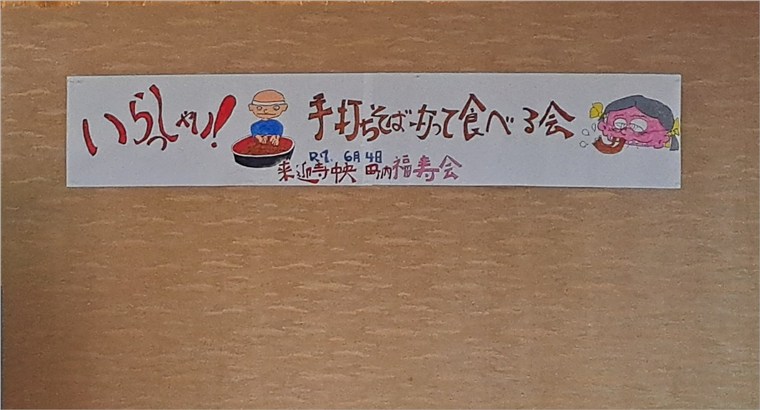 いらっしゃい! 手打ちそば打って食べる会
R7. 6月4日
来迎寺中央 町内福寿会